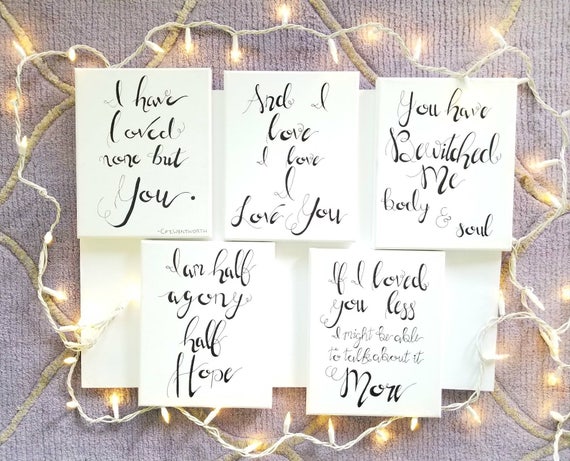 I have
loved
none but
You.
-CPT.WENTWORTH
And I
love
I love
I
Love You
You have
Bewitched
Me
body
& soul
I am half
agony
half
Hope
If I loved
you less
I might be able
to talk about it
More